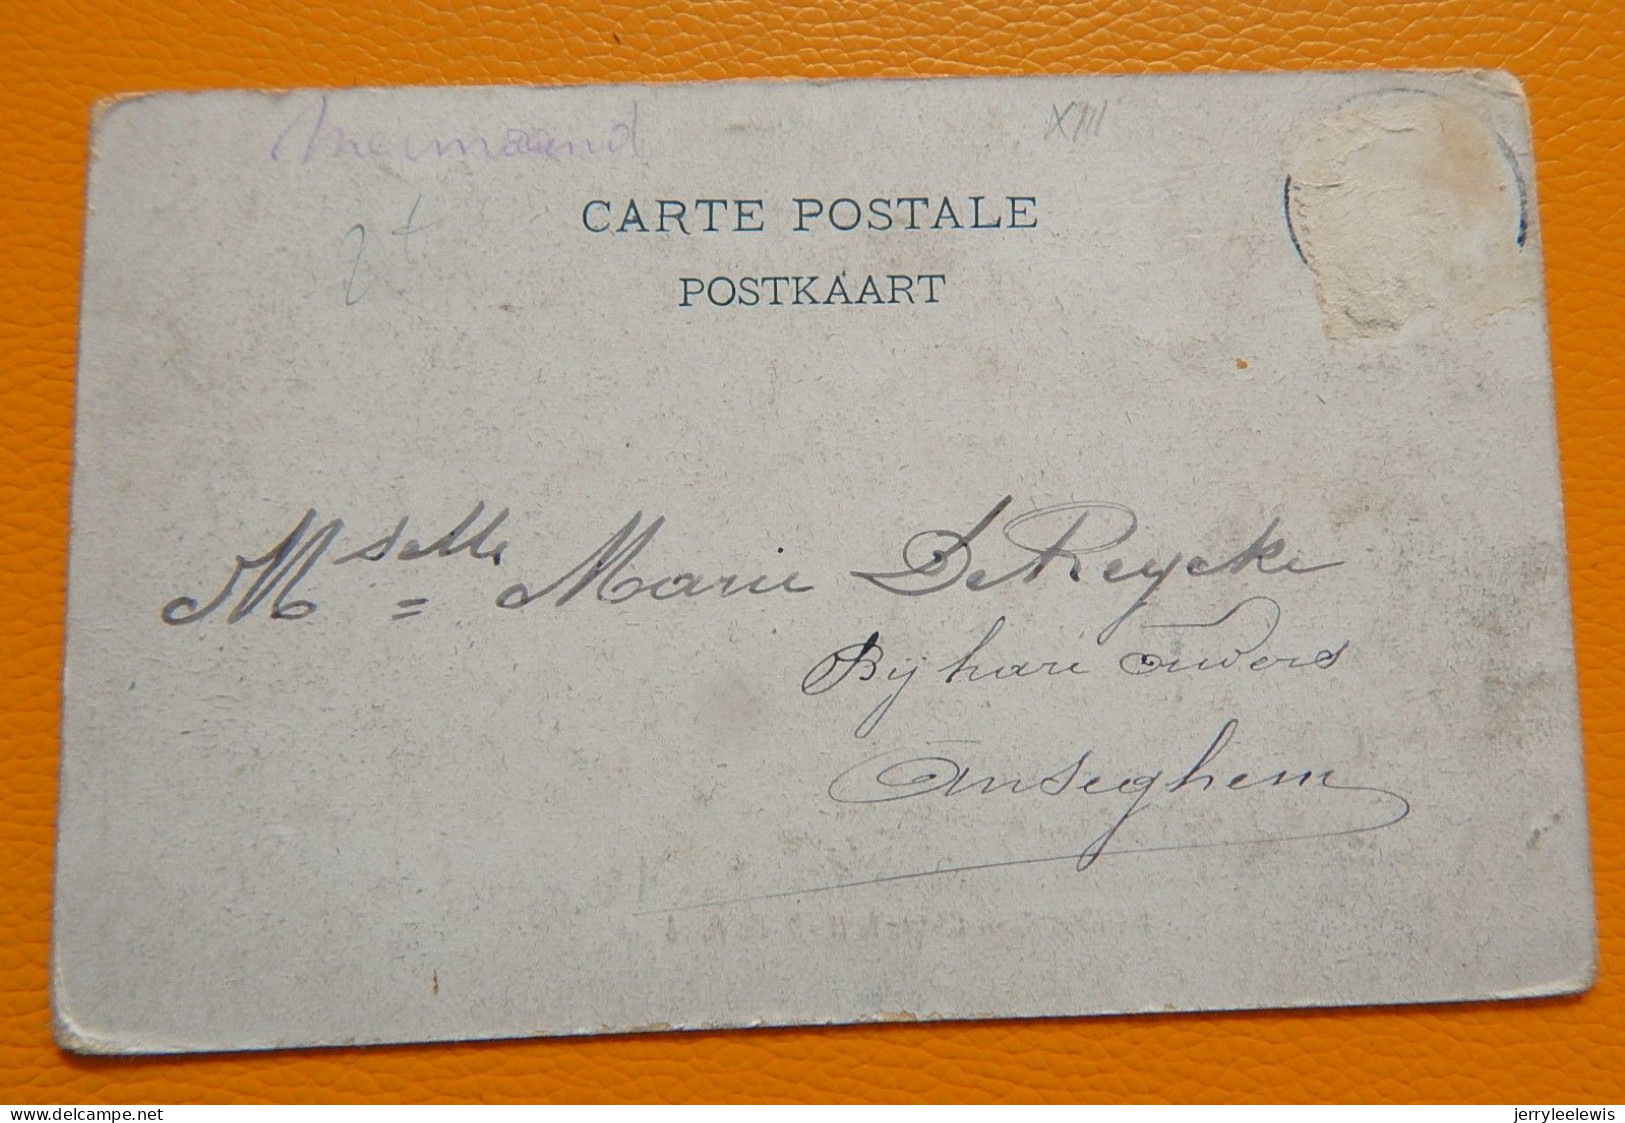 XIII
CARTE POSTALE
POSTKAART
Mselle = Marie De Reycke
Bij hare Ouders
Anseghem
delcampe.net
jerryleelewis